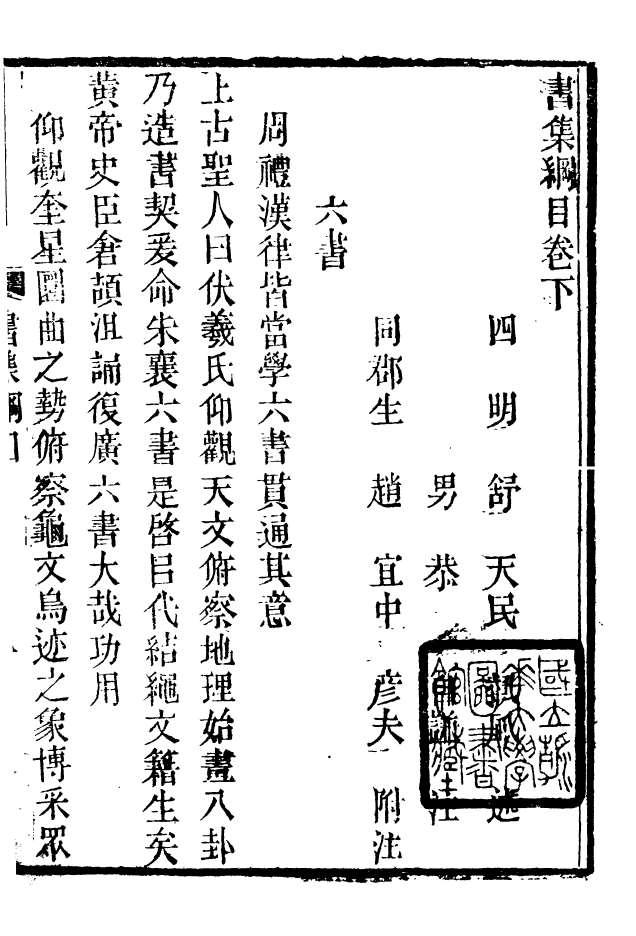 書集綱目卷下
四明舒天民述
男恭注
同郡生趙宜中彦夫附注
六書
周禮漢律皆當學六書貫通其意
上古聖人曰伏羲氏仰觀天文俯察地理始畫八卦
乃造書契爰命朱襄六書是啓㠯代結繩文籍生矣
黄帝史臣倉頡沮誦復廣六書大哉功用
仰觀奎星圜曲之勢俯察龜文鳥迹之象博采眾